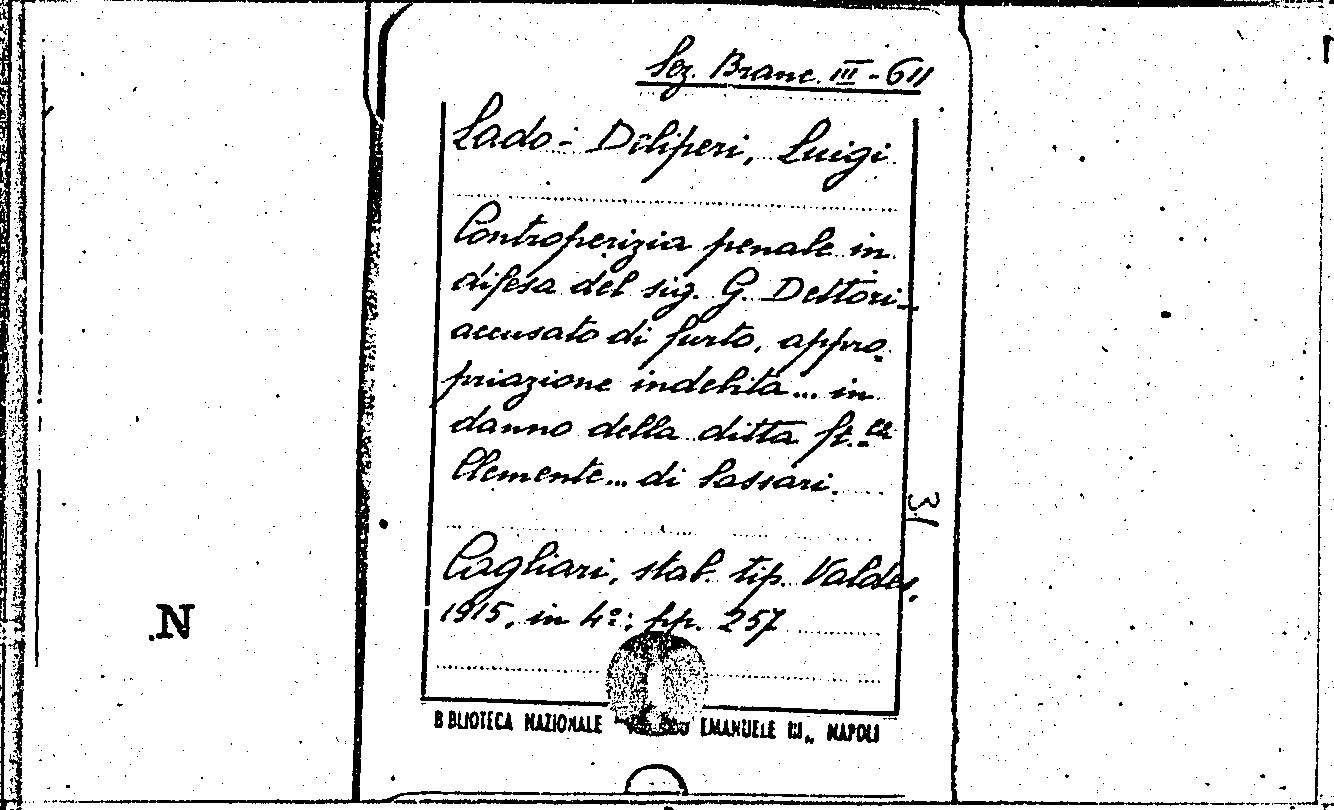 Sez. Branc. III - 611
Lado - Diliperi, Luigi
Controperizia penale in
difesa del sig. G. Dettori
accusato di furto, appro-
priazione indebita... in
danno della ditta
Clemente... di Sassari.
31
Cagliari, stab. tip. Valdes,
1915, in 4º; pp. 257
N
BIBLIOTECA NAZIONALE EMANUELE III„ NAPOLI